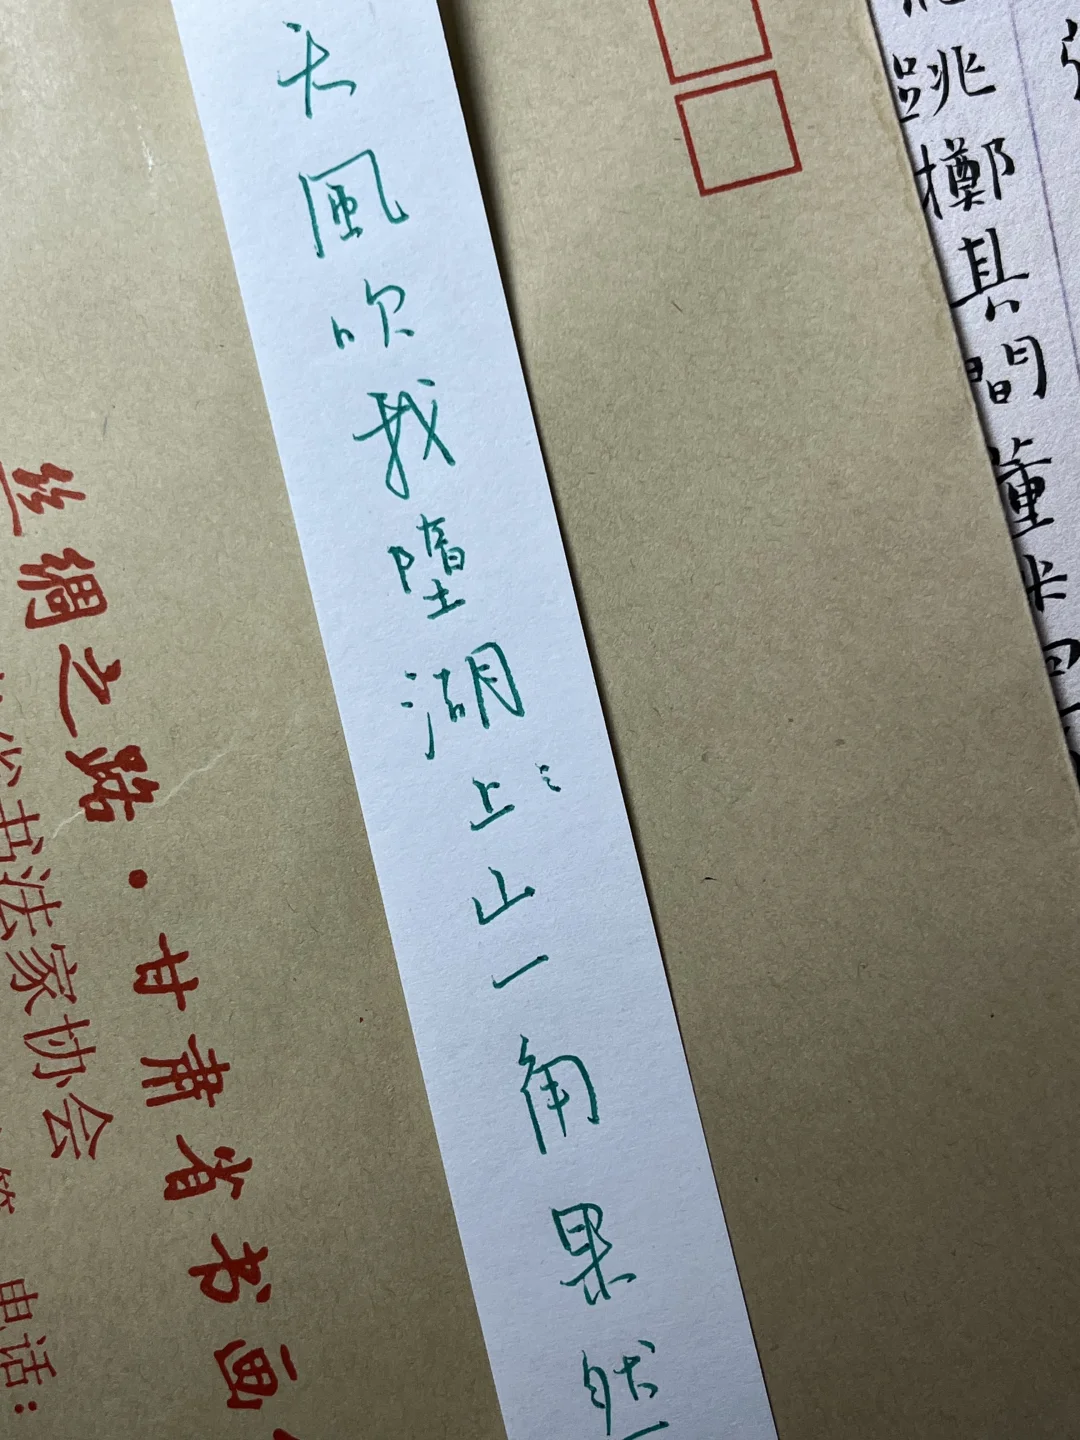 跳擲其間董米
天風吹我墮湖上山一角果然
丝绸之路·甘肃省书画
省书法家协会
电话: